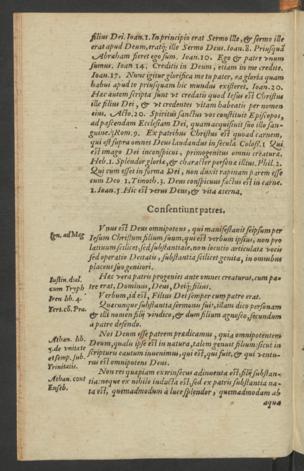 filius Dei. Ioan. 1. In principio erat Sermo ille, & sermo ille
erat apud Deum, eratq; ille Sermo Deus. Ioan. 8. Priusquā
Abraham fieret ego sum. Ioan. 10. Ego & pater vnum
sumus. Ioan 14. Creditis in Deum, etiam in me credite.
Ioan. 17. Nunc igitur glorifica me tu pater, ea gloria quam
habui apud te priusquam hic mundus existeret. Ioan. 20.
Hæc autem scripta sunt vt credatis quod Iesus est Christus
ille filius Dei, & vt credentes vitam habeatis per nomen
eius. Acto. 20. Spiritus sanctus vos constituit Episcopos,
ad pascendam Ecclesiam Dei, quam acquisiuit suo ille san-
guine. Rom. 9. Ex patribus Christus est quoad carnem,
qui est supra omnes Deus laudandus in secula. Coloss. 1. Qui
est imago Dei inconspicui, primogenitus omnis creaturæ.
Heb. 1. Splendor gloriæ, & character personæ illius. Phil. 2.
Qui cum esset in forma Dei, non duxit rapinam parem esse
cum Deo 1. Timoth. 3. Deus conspicuus factus est in carne.
1. Ioan. 5 Hic est verus Deus, & vita æterna.
Consentiunt patres.
Ign. ad Mag
Vnus est Deus omnipotens, qui manifestauit seipsum per
Iesum Christum filium suum, qui est verbum ipsius, non pro
latiuum scilicet, sed substantiale, non locutio articulatæ vocis
sed operatio Deitatis, substantia scilicet genita, in omnibus
placens suo genitori.
Iustin. dial.
cum Tryph
Hæc vera patris progenies ante omnes creaturas, cum pa-
tre erat, Dominus, Deus, Deiq; filius.
Iren lib. 4.
Verbum, id est, Filius Dei semper cum patre erat.
Tert. cō. Pra.
Quacunque substantia sermonis sui, illam dico personam
& illi nomen filij vendico, & dum filium agnosco, secundum
a patre defendo.
Athan. lib.
de vnitate
et semp. sub.
Trinitatis.
Nos Deum esse patrem prædicamus, quia omnipotentem
Deum, qualis ipse est in natura, talem genuit filium: sicut in
scripturis cautum inuenimus, qui est, qui fuit, & qui ventu-
rus est omnipotens Deus.
Athan. cont
Euseb.
Non res quapiam extrinsecus adinuenta est, filij substan-
tia: neque ex nihilo inducta est, sed ex patris substantia na-
ta est, quemadmodum à luce splendor, quemadmodum ab
aqua